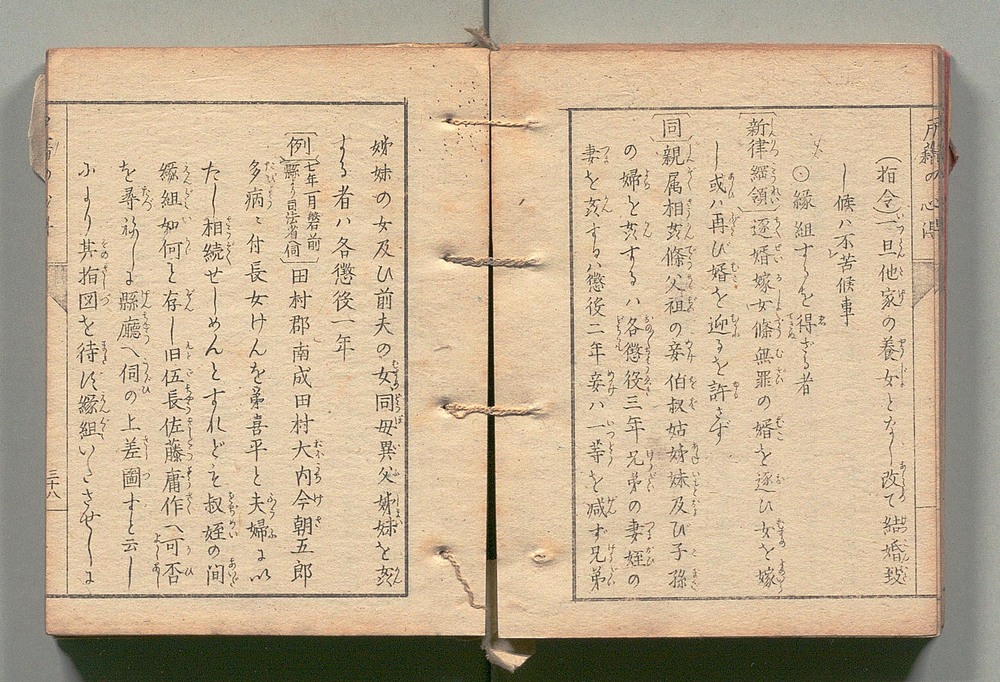 (指令)一旦他家の養女となし改て結婚致
し候ハ不苦候事
○縁組することを得ざる者
〔新律綱領〕逐婿嫁女條無罪の婿を逐ひ女を嫁
し或ハ再び婿を迎るを許さず
〔同〕親属相姦條父祖の妾伯叔姑姉妹及び子孫
の婦と姦するハ各懲役三年兄弟の妻姪の
妻を姦するハ懲役二年妾ハ一等を减ず兄弟
姉妹の女及ひ前夫の女同母異父姉妹を姦
する者ハ各懲役一年
〔例〕〔七年一月磐前縣より司法省伺〕田村郡南成田村大内今朝五郎
多病ニ付長女けんを弟喜平と夫婦に以
たし相続せしめんとすれども叔姪の間
縁組如何と存し旧伍長佐藤庸作へ可否
を尋ねしに縣廳へ伺の上差圖すと云し
により其指図を待ず縁組いたさせしに
三十八